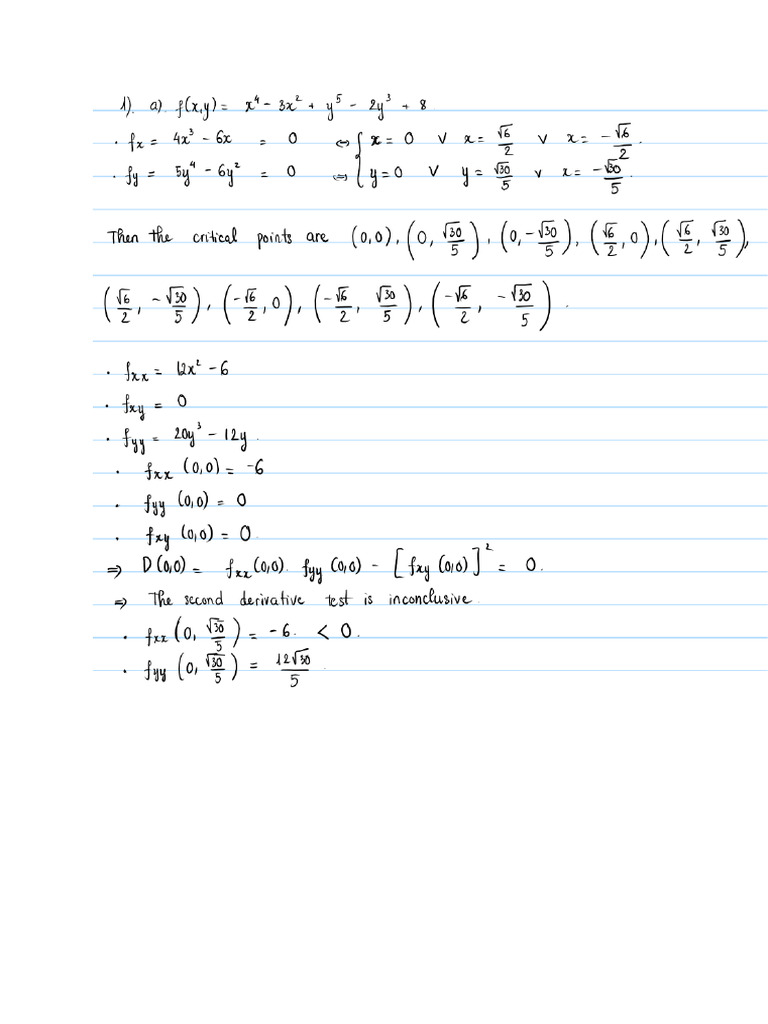 1). a) f(x,y) = x⁴ - 3x² + y⁵ - 2y³ + 8
· fx = 4x³ - 6x = 0 ⇔ { x = 0 ∨ x = √6/2 ∨ x = -√6/2.
· fy = 5y⁴ - 6y² = 0 ⇔ { y = 0 ∨ y = √30/5 ∨ x = -√30/5.
Then the critical points are (0,0), (0, √30/5), (0, -√30/5), (√6/2, 0), (√6/2, √30/5),
(√6/2, -√30/5), (-√6/2, 0), (-√6/2, √30/5), (-√6/2, -√30/5).
· fxx = 12x² - 6
· fxy = 0
· fyy = 20y³ - 12y.
· fxx (0,0) = -6
· fyy (0,0) = 0
· fxy (0,0) = 0.
⇒ D(0,0) = fxx(0,0). fyy (0,0) - [fxy (0,0)]² = 0.
⇒ The second derivative test is inconclusive.
· fxx (0, √30/5) = -6. < 0.
· fyy (0, √30/5) = 12√30/5.